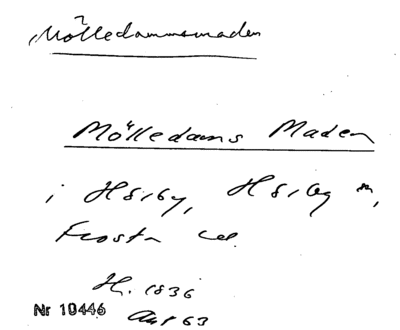 Mölledammsmaden
Mölledams Maden
i Hörby, Hörby sn,
Frosta hd.
H. 1836
Akt 63
Nr 10446